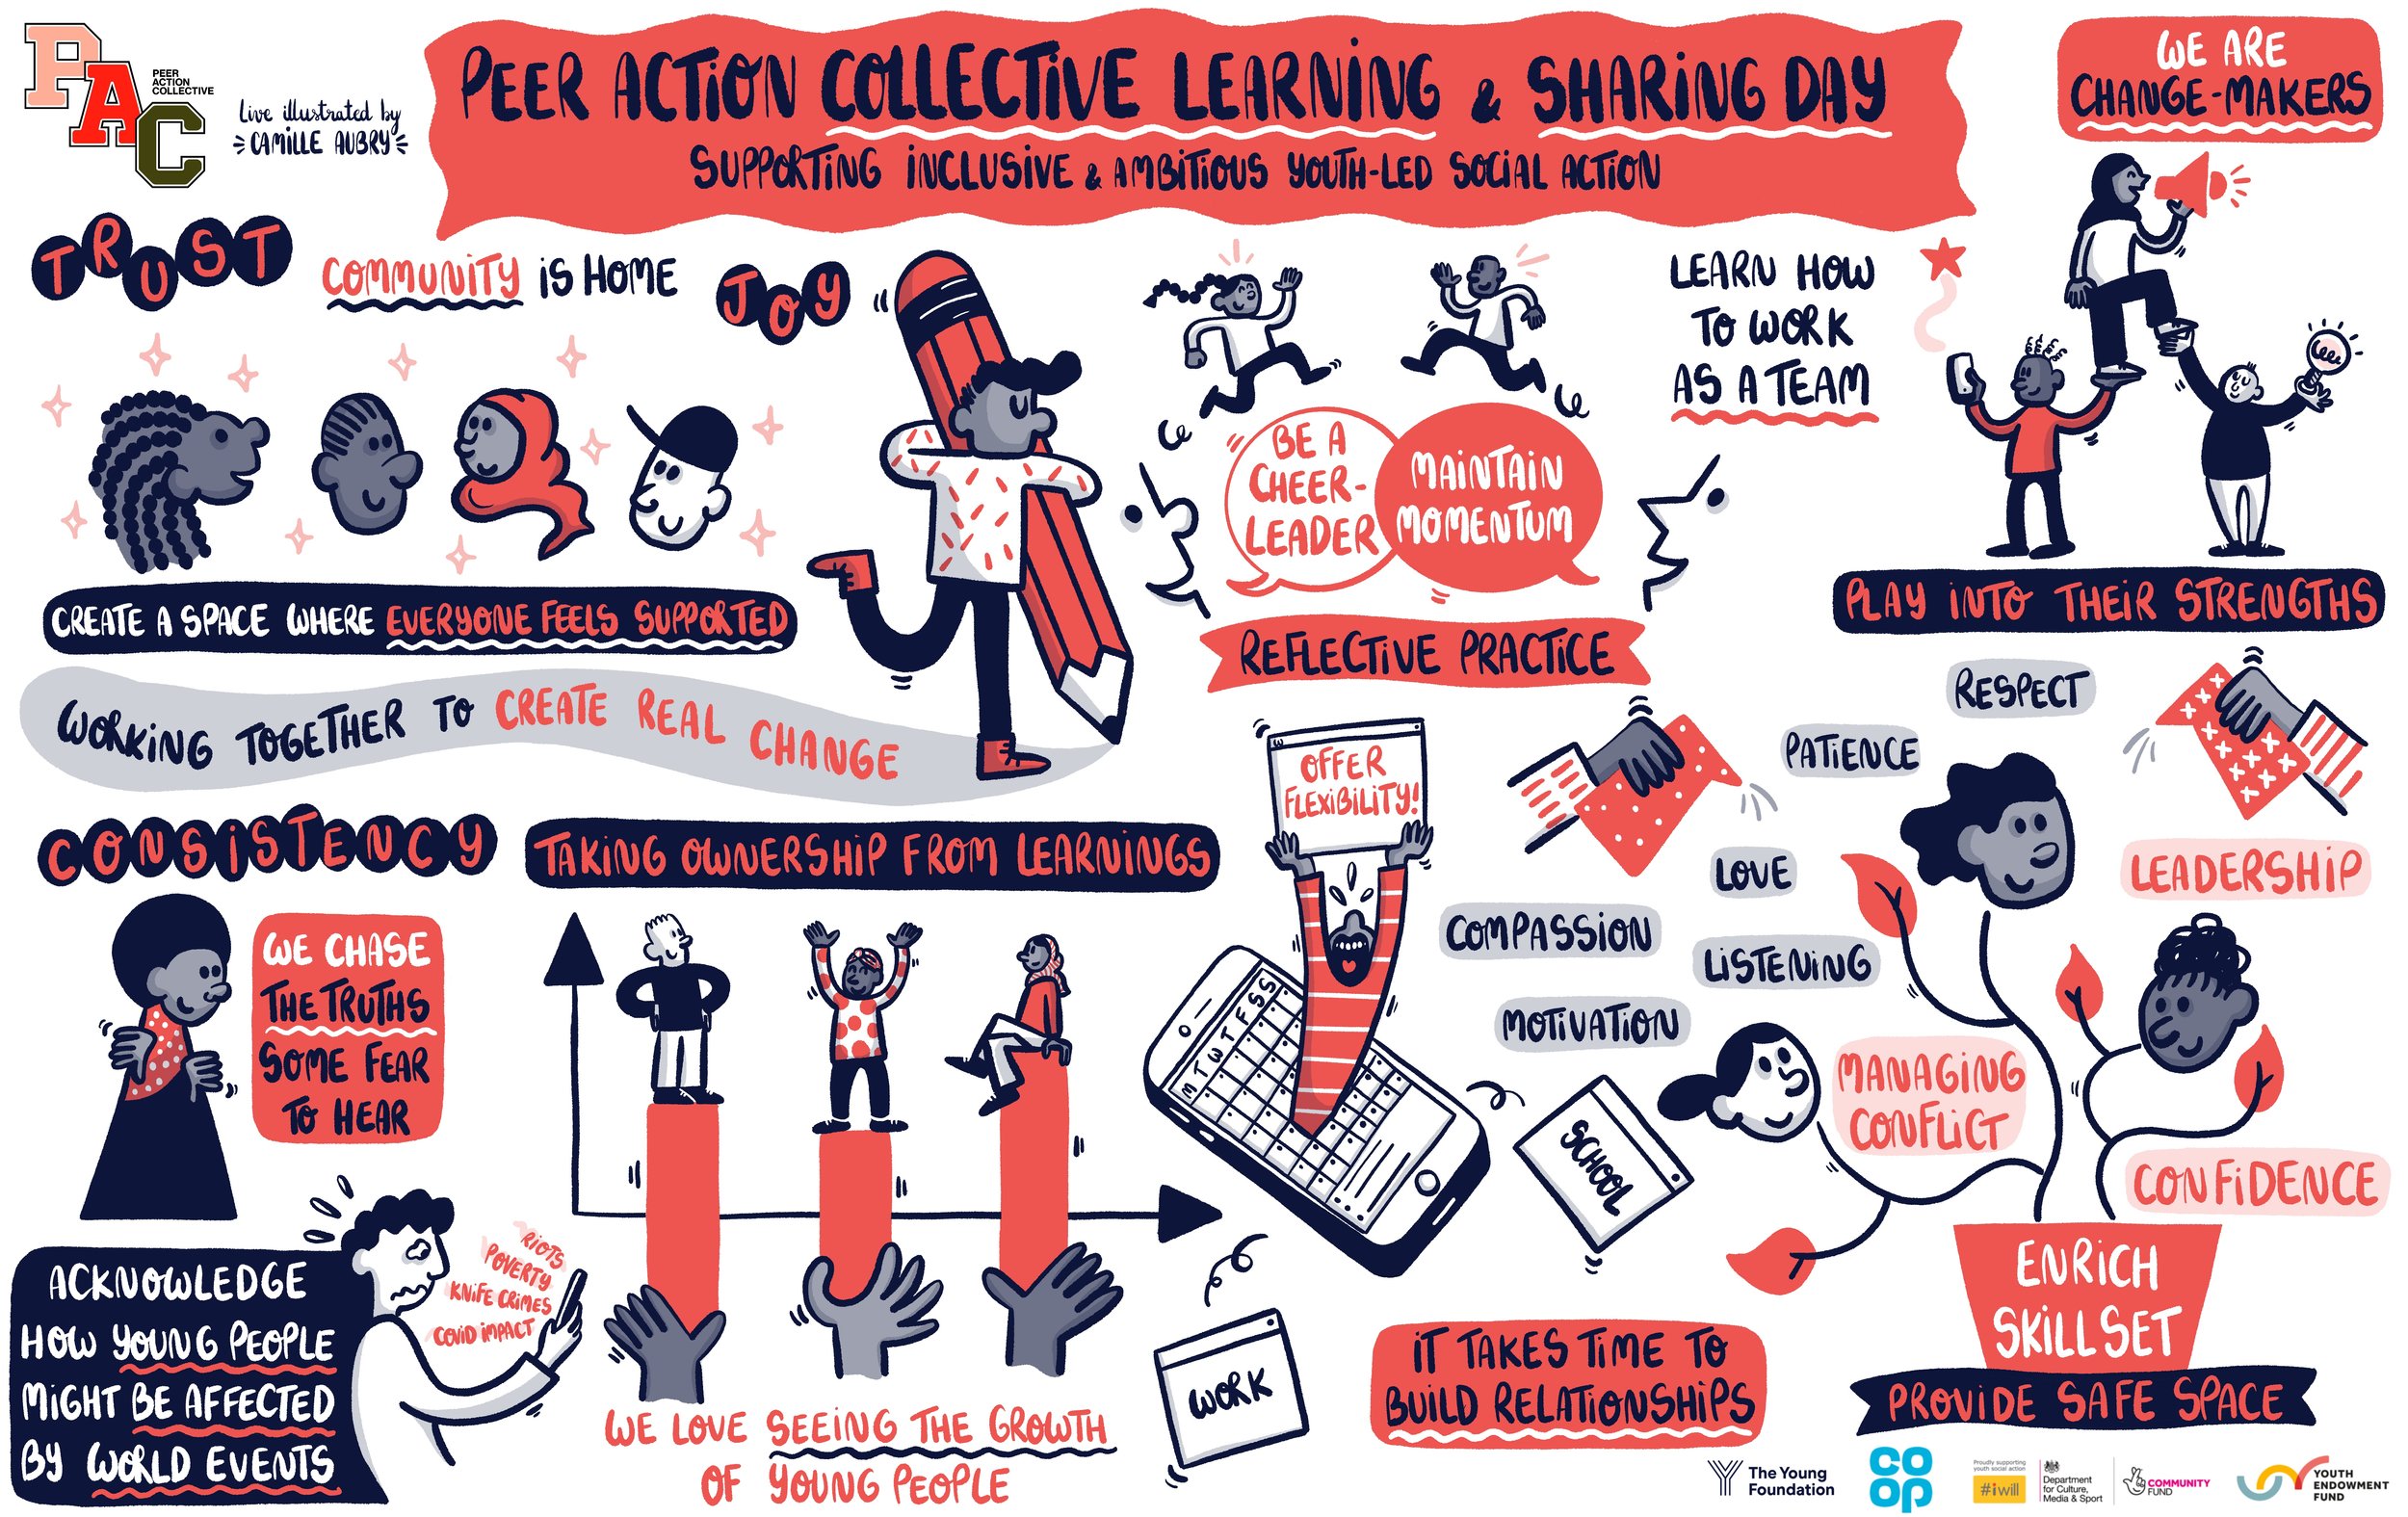 PAC
PEER
ACTION
COLLECTIVE
Live illustrated by
CAMILLE AUBRY
PEER ACTION COLLECTIVE LEARNING & SHARING DAY
SUPPORTING INCLUSIVE & AMBITIOUS YOUTH-LED SOCIAL ACTION
WE ARE
CHANGE-MAKERS
TRUST
COMMUNITY IS HOME
JOY
LEARN HOW
TO WORK
AS A TEAM
BE A
CHEER-
LEADER
MAINTAIN
MOMENTUM
CREATE A SPACE WHERE EVERYONE FEELS SUPPORTED
PLAY INTO THEIR STRENGTHS
REFLECTIVE PRACTICE
WORKING TOGETHER TO CREATE REAL CHANGE
RESPECT
PATIENCE
OFFER
FLEXIBILITY!
CONSISTENCY
TAKING OWNERSHIP FROM LEARNINGS
LOVE
LEADERSHIP
COMPASSION
LISTENING
MOTIVATION
WE CHASE
THE TRUTHS
SOME FEAR
TO HEAR
M T W T F S S
MANAGING
CONFLICT
SCHOOL
CONFIDENCE
ACKNOWLEDGE
HOW YOUNG PEOPLE
MIGHT BE AFFECTED
BY WORLD EVENTS
RIOTS
POVERTY
KNIFE CRIMES
COVID IMPACT
ENRICH
SKILL SET
PROVIDE SAFE SPACE
WORK
IT TAKES TIME TO
BUILD RELATIONSHIPS
WE LOVE SEEING THE GROWTH
OF YOUNG PEOPLE
The Young
Foundation
CO
OP
Proudly supporting
youth social action
#iwill
Department
for Culture,
Media & Sport
COMMUNITY
FUND
YOUTH
ENDOWMENT
FUND